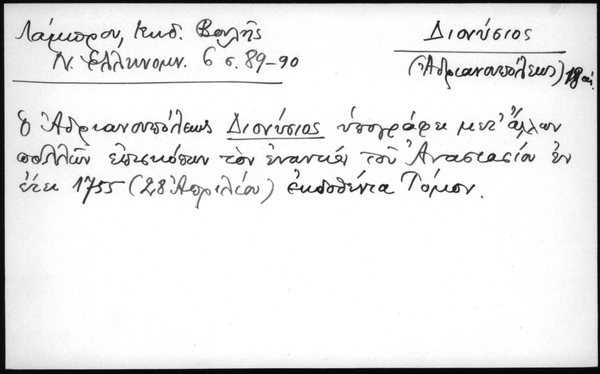 Λάμπρου, Κωδ. Βουλῆς
Ν. Ἑλληνομν. 6 σ. 89-90
Διονύσιος
(Ἀδριανουπόλεως) 18 αἰ.
Ὁ Ἀδριανουπόλεως Διονύσιος ὑπογράφει μετ' ἄλλων
πολλῶν ἐπισκόπων τὸν ἐναντίον τοῦ Ἀναστασίου ἐν
ἔτει 1755 (28 Ἀπριλίου) ἐκδοθέντα Τόμον.